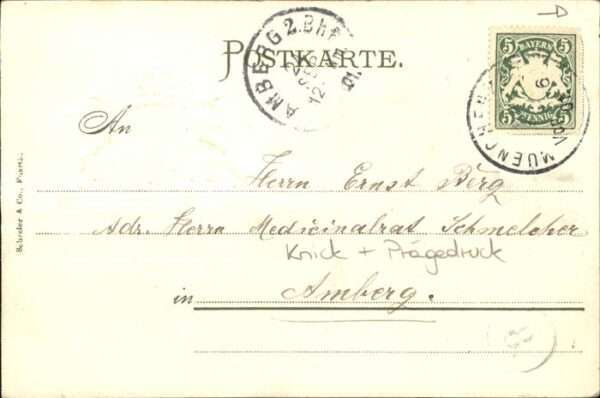 POSTKARTE.
AMBERG 2. Bhf.
12.
01.
5 BAYERN 5
5 PFENNIG 5
MUENCHEN
An
Herrn Ernst Berg
Adr. Herrn Medicinalrat Schmelcher
Knick + Prägedruck
in Amberg.